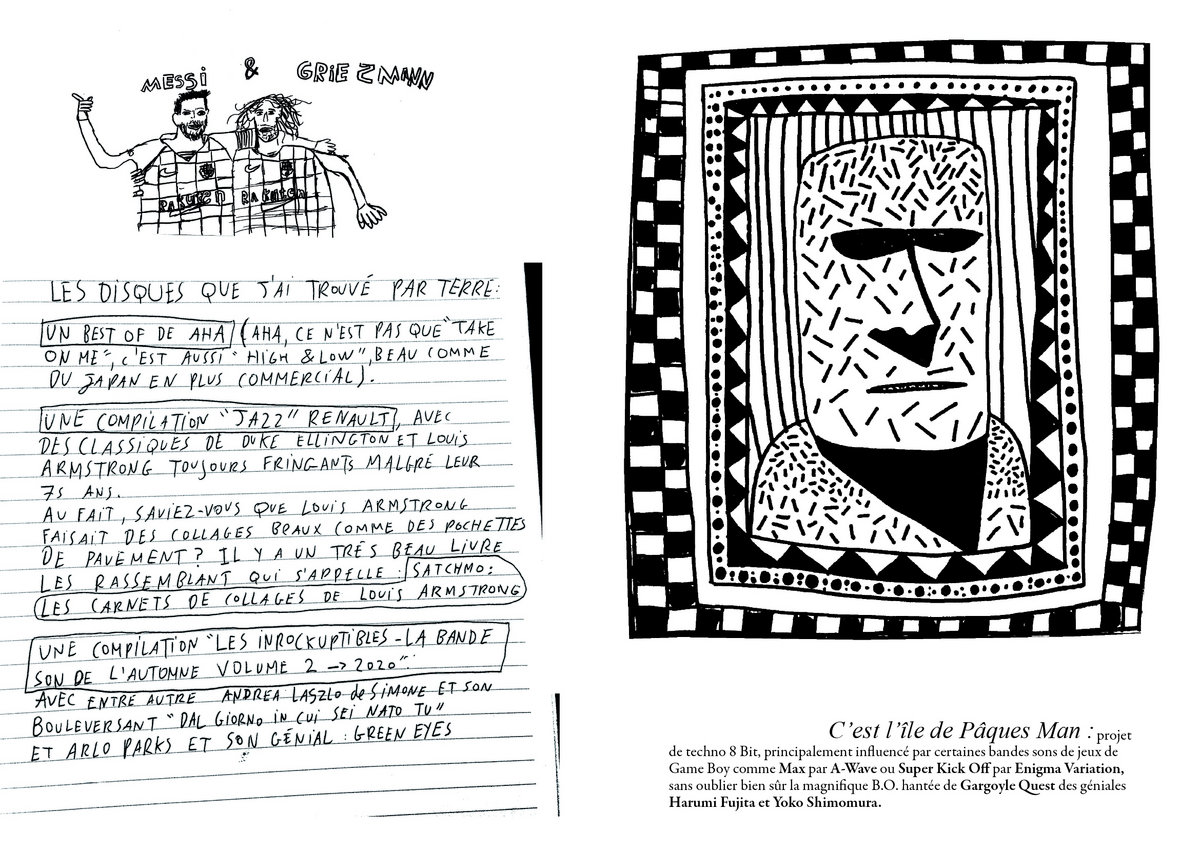 MESSI & GRIEZMANN
RAKUTEN RAKUTEN
LES DISQUES QUE J'AI TROUVÉ PAR TERRE:
UN BEST OF DE AHA (AHA, CE N'EST PAS QUE "TAKE
ON ME", C'EST AUSSI "HIGH & LOW", BEAU COMME
DU JAPAN EN PLUS COMMERCIAL).
UNE COMPILATION "JAZZ" RENAULT, AVEC
DES CLASSIQUES DE DUKE ELLINGTON ET LOUIS
ARMSTRONG TOUJOURS FRINGANTS MALGRÉ LEUR
75 ANS.
AU FAIT, SAVIEZ-VOUS QUE LOUIS ARMSTRONG
FAISAIT DES COLLAGES BEAUX COMME DES POCHETTES
DE PAVEMENT? IL Y A UN TRÉS BEAU LIVRE
LES RASSEMBLANT QUI S'APPELLE: SATCHMO:
LES CARNETS DE COLLAGES DE LOUIS ARMSTRONG
UNE COMPILATION "LES INROCKUPTIBLES - LA BANDE
SON DE L'AUTOMNE VOLUME 2 → 2020".
AVEC ENTRE AUTRE ANDREA LASZLO de SIMONE ET SON
BOULEVERSANT "DAL GIORNO IN CUI SEI NATO TU"
ET ARLO PARKS ET SON GÉNIAL: GREEN EYES
C'est l'île de Pâques Man : projet
de techno 8 Bit, principalement influencé par certaines bandes sons de jeux de
Game Boy comme Max par A-Wave ou Super Kick Off par Enigma Variation,
sans oublier bien sûr la magnifique B.O. hantée de Gargoyle Quest des géniales
Harumi Fujita et Yoko Shimomura.